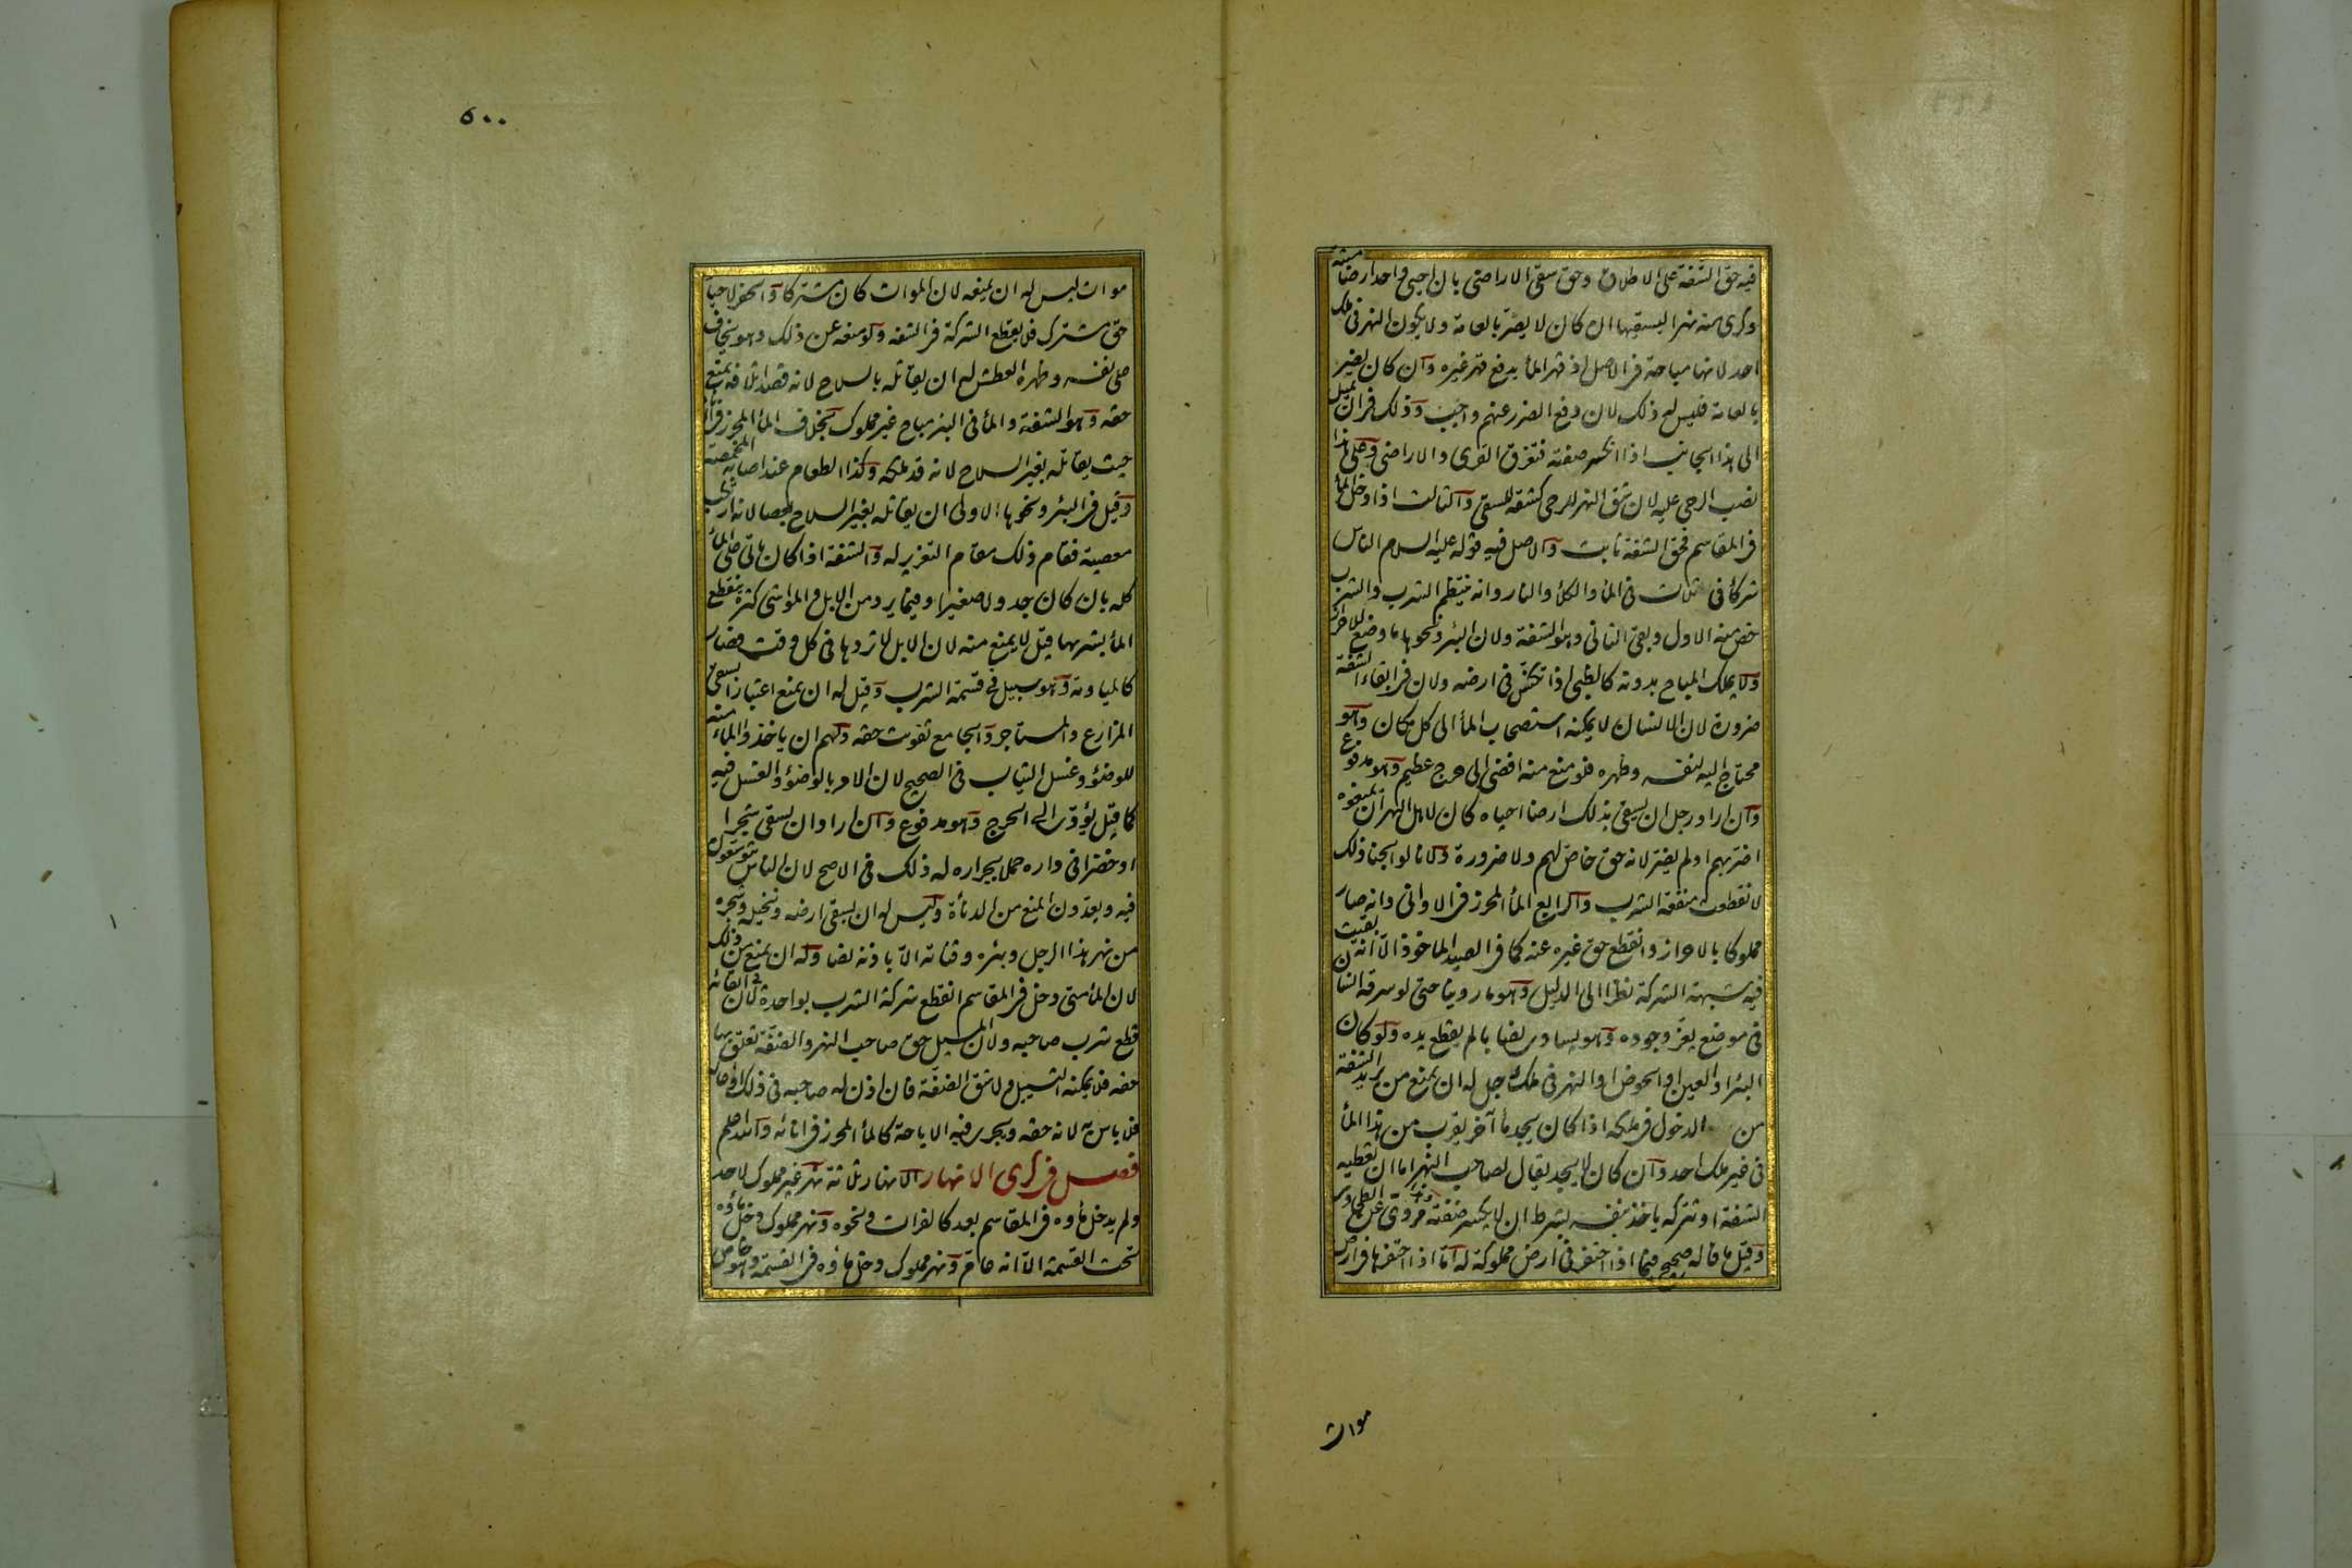 فيه حق الشفة على الاطلاق وحق سقى الاراضى بان احيى واحد ارضا ميتة
وكرى منه نهرا ليسقيها ان كان لا يضر بالعامة ولا يكون النهر فى ملك
احد لانها مباحة فى الاصل اذ قهر الماء يدفع قهر غيره وان كان يضر
بالعامة فليس له ذلك لان دفع الضرر عنهم واجب وذلك فى ان يميل
الى هذا الجانب اذا انكسر ضفته فتغرق القرى والاراضى وعلى هذا
نصب الرحى عليه لان شق النهر للرحى كشقه للسقى والثالث اذا دخل الماء
فى المقاسم فحق الشفة ثابت والاصل فيه قوله عليه السلام الناس
شركاء فى ثلاث فى الماء والكلأ والنار وانه ينتظم الشرب والشرب
خص منه الاول وبقى الثانى وهو الشفة ولان البئر ونحوها ما وضع للاحراز
ولا يملك المباح بدونه كالظبى اذا تكنس فى ارضه ولان فى ابقاء الشفة
ضرورة لان الانسان لا يمكنه استصحاب الماء الى كل مكان وهو
محتاج اليه لنفسه وظهره فلو منع منه افضى الى حرج عظيم وهو مدفوع
وان اراد رجل ان يسقى بذلك ارضا احياه كان لاهل النهر ان يمنعوه
اضر بهم او لم يضر لانه حق خاص لهم ولا ضرورة ولانا لو ابحنا ذلك
لانقطعت منفعة الشرب والرابع الماء المحرز فى الاوانى وانه صار
مملوكا بالاحراز وانقطع حق غيره عنه كما فى الصيد الماخوذ الا انه بقيت
فيه شبهة الشركة نظرا الى الدليل وهو ما روينا حتى لو سرقه انسان
فى موضع يعز وجوده وهو يساوى نصابا لم يقطع يده ولو كان
البئر او العين او الحوض او النهر فى ملك رجل له ان يمنع من يريد الشفة
من الدخول فى ملكه اذا كان يجد ماء آخر يقرب من هذا الماء
فى غير ملك احد وان كان لا يجد يقال لصاحب النهر اما ان تعطيه
الشفة او تتركه ياخذ بنفسه بشرط ان لا يكسر ضفته وهذا مروى عن الطحاوى
وقيل ما قاله صحيح فيما اذا احتفر فى ارض مملوكة له اما اذا احتفرها فى ارض
موات
٥٠٠
موات ليس له ان يمنعه لان الموات كان مشتركا والحفر لاحياء
حق مشترك فلا يقطع الشركة فى الشفة ولو منعه عن ذلك وهو يخاف
على نفسه وظهره العطش له ان يقاتله بالسلاح لانه قصد اتلافه بمنع
حقه وهو الشفة والماء فى البئر مباح غير مملوك بخلاف الماء المحرز فى الاناء
حيث يقاتله بغير السلاح لانه قد ملكه وكذا الطعام عند اصابة المخمصة
وقيل فى البئر ونحوها الاولى ان يقاتله بغير السلاح بعصا لانه ارتكب
معصية فقام ذلك مقام التعزير له والشفة اذا كان ياتى على الماء
كله بان كان جدولا صغيرا وفيما يرد من الابل والمواشى كثرة ينقطع
الماء بشربها قيل لا يمنع منه لان الابل لا تردها فى كل وقت فصار
كالمياومة وهو سبيل فى قسمة الشرب وقيل له ان يمنع اعتبارا بسقى
المزارع والمشاجر والجامع تفويت حقه ولهم ان ياخذوا الماء منه
للوضوء وغسل الثياب فى الصحيح لان الامر بالوضوء والغسل فيه
كما قيل يؤدى الى الحرج وهو مدفوع وان اراد ان يسقى شجرا
او خضرا فى داره حملا بجراره له ذلك فى الاصح لان الناس يتوسعون
فيه ويعدون المنع من الدناءة وليس له ان يسقى ارضه ونخيله وشجره
من نهر هذا الرجل وبئره وقناته الا باذنه نصا وله ان يمنع من ذلك
لان الماء متى دخل فى المقاسم انقطع شركة الشرب بواحدة لان فى ابقائه
قطع شرب صاحبه ولان المسيل حق صاحب النهر والضفة تعلق بها
حقه فلا يمكنه التسييل ولا شق الضفة فان اذن له صاحبه فى ذلك او اعاره
فلا باس به لانه حقه ويجرى فيه الاباحة كالماء المحرز فى انائه والله اعلم
فصل فى كرى الانهار الانهار ثلاثة نهر غير مملوك لاحد
ولم يدخل ماؤه فى المقاسم بعد كالفرات ونحوه ونهر مملوك دخل ماؤه
تحت القسمة الا انه عام ونهر مملوك دخل ماؤه فى القسمة وهو خاص